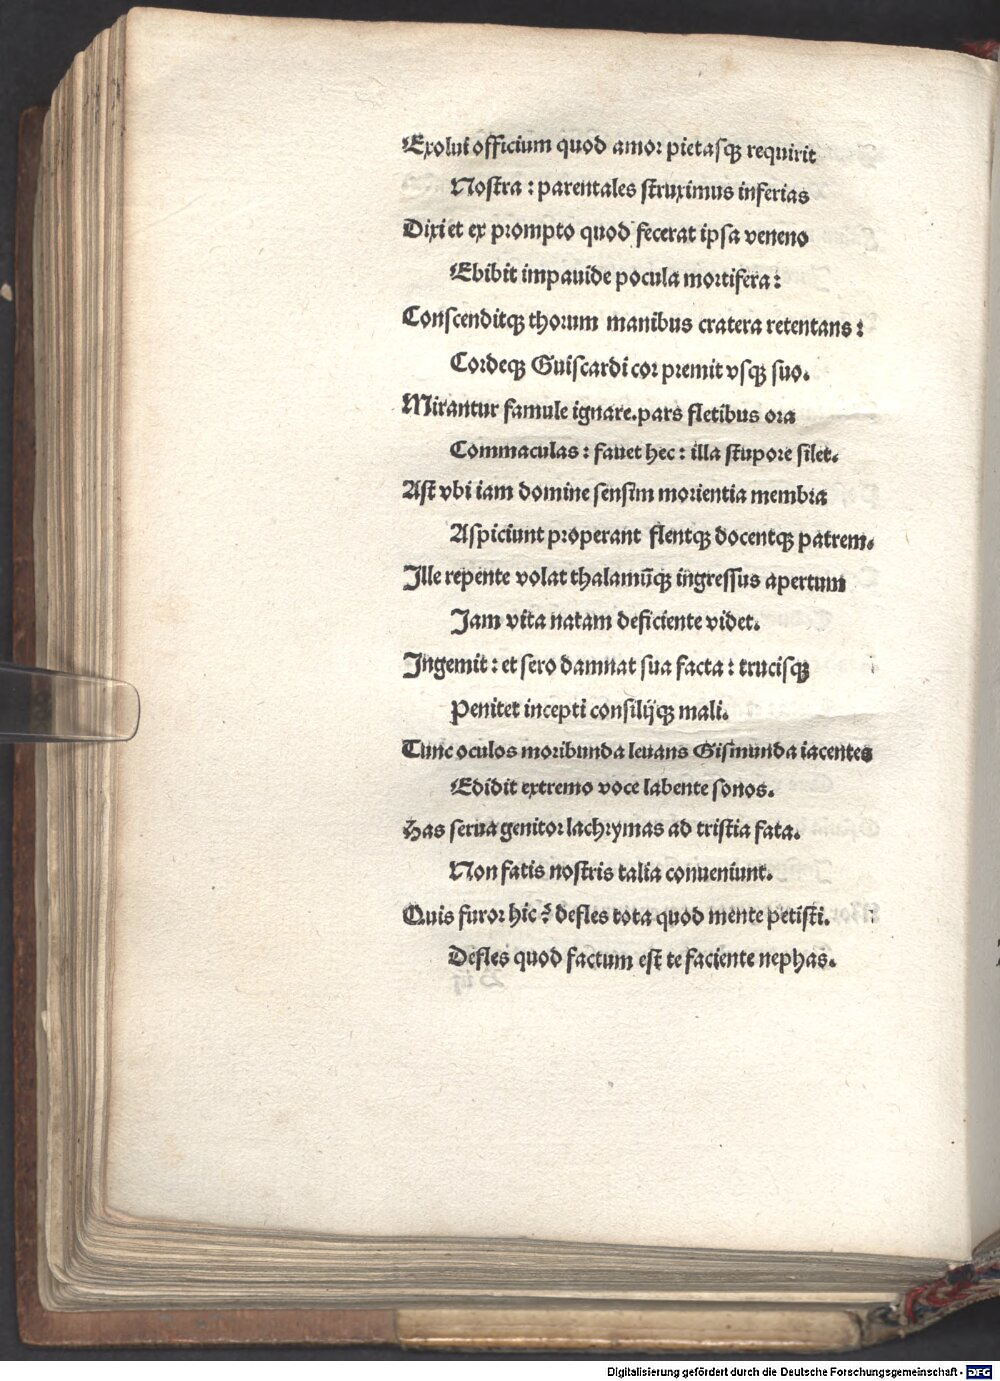 Exolui officium quod amor pietasqꝫ requirit
Nostra : parentales struximus inferias
Dixi et ex prompto quod fecerat ipsa veneno
Ebibit impauide pocula mortifera :
Conscenditqꝫ thorum manibus cratera retentans :
Cordeqꝫ Guiscardi cor premit vsqꝫ suo.
Mirantur famule ignare. pars fletibus ora
Commaculas : fauet hec : illa stupore silet.
Ast vbi iam domine sensim morientia membra
Aspiciunt properant flentqꝫ docentqꝫ patrem.
Ille repente volat thalamūqꝫ ingressus apertum
Jam vita natam deficiente videt.
Ingemit : et sero damnat sua facta : trucisqꝫ
Penitet incepti consilijqꝫ mali.
Tunc oculos moribunda leuans Gismunda iacentes
Edidit extremo voce labente sonos.
Has serua genitor lachrymas ad tristia fata.
Non fatis nostris talia conueniunt.
Quis furor hic ? defles tota quod mente petisti.
Defles quod factum est te faciente nephas.
Digitalisierung gefördert durch die Deutsche Forschungsgemeinschaft - DFG